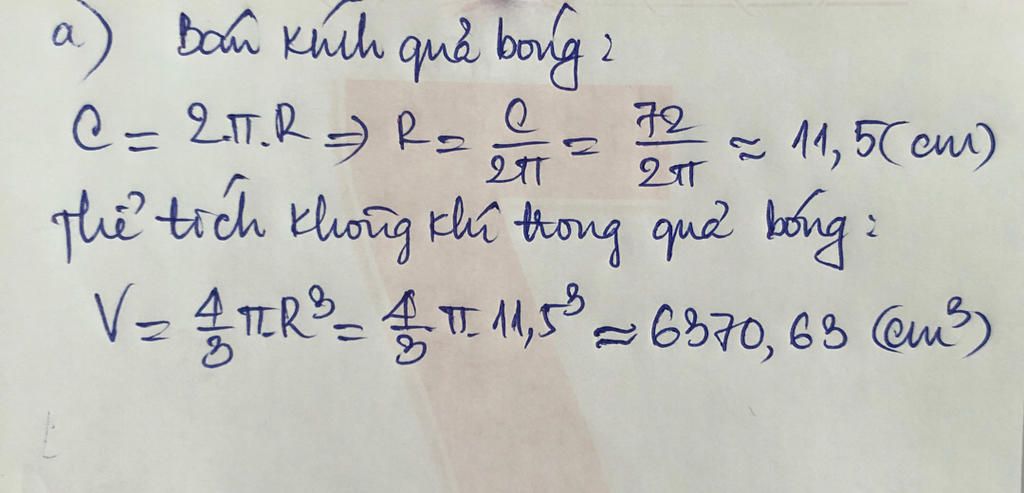 a) Bán kính quả bóng:
C = 2.π.R ⇒ R = C/2π = 72/2π ≈ 11,5(cm)
Thể tích không khí trong quả bóng:
V = 4/3 π.R³ = 4/3 π.11,5³ ≈ 6370,63 (cm³)